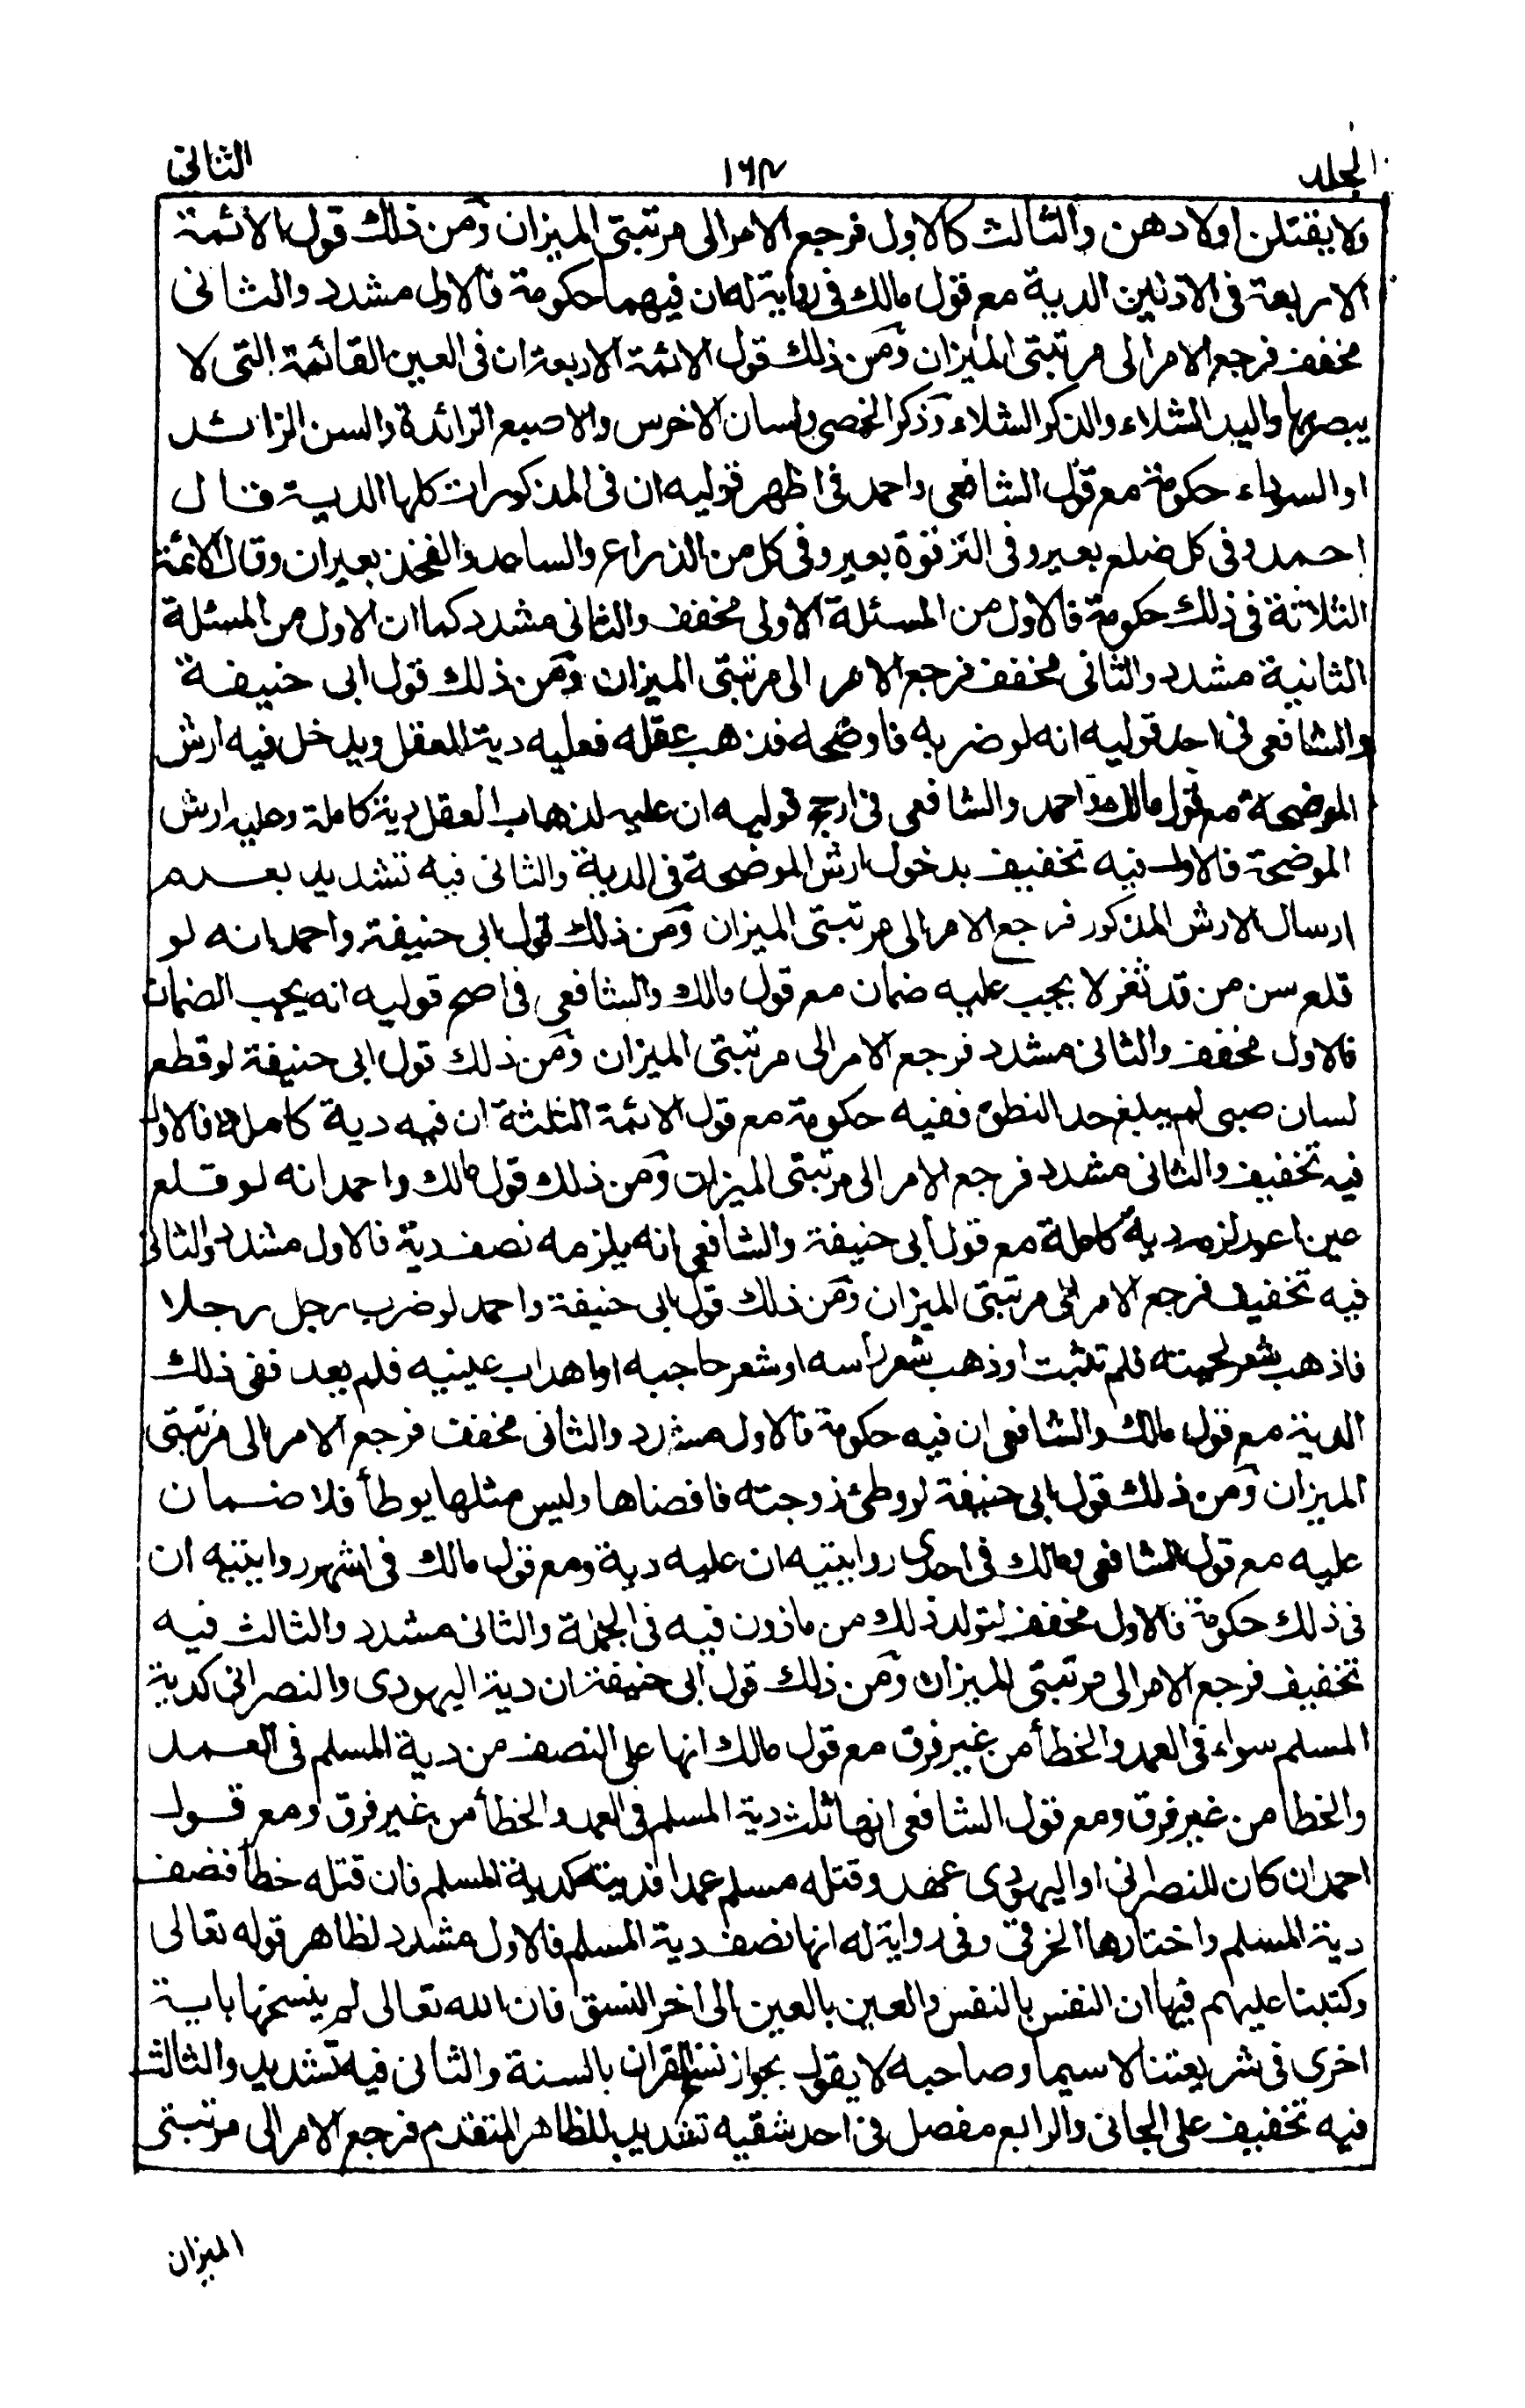 المجلد
١٦٢
الثانى
ولا يقتلن اولادهن والثالث كالاول فرجع الامر الى مرتبتى الميزان ومن ذلك قول الائمة
الاربعة فى الاذنين الدية مع قول مالك فى رواية له ان فيهما حكومة فالاول مشدد والثانى
مخفف فرجع الامر الى مرتبتى الميزان ومن ذلك قول الائمة الاربعة ان فى العين القائمة التى لا
يبصر بها واليد الشلاء والذكر الشلاء وذكر الخصى ولسان الاخرس والاصبع الزائدة والسن الزائد
او السوداء حكومة مع قول الشافعى واحمد فى اظهر قوليه ان فى المذكورات كلها الدية قال
احمد وفى كل ضلع بعير وفى الترقوة بعير وفى كل من الذراع والساعد والفخذ بعيران وقال الائمة
الثلاثة فى ذلك حكومة فالاول من المسئلة الاولى مخفف والثانى مشدد كما ان الاول من المسئلة
الثانية مشدد والثانى مخفف فرجع الامر الى مرتبتى الميزان ومن ذلك قول ابى حنيفة
والشافعى فى احد قوليه انه لو ضربه فاوضحه فذهب عقله فعليه دية العقل ويدخل فيه ارش
الموضحة مع قول مالك واحمد والشافعى فى ارجح قوليه ان عليه لذهاب العقل دية كاملة وعليه ارش
الموضحة فالاول فيه تخفيف بدخول ارش الموضحة فى الدية والثانى فيه تشديد بعدم
ارسال الارش المذكور فرجع الامر الى مرتبتى الميزان ومن ذلك قول ابى حنيفة واحمد انه لو
قلع سن من قد ثغر لا يجب عليه ضمان مع قول مالك والشافعى فى اصح قوليه انه يجب الضمان
فالاول مخفف والثانى مشدد فرجع الامر الى مرتبتى الميزان ومن ذلك قول ابى حنيفة لو قطع
لسان صبى لم يبلغ حد النطق ففيه حكومة مع قول الائمة الثلثة ان فيه دية كاملة فالاول
فيه تخفيف والثانى مشدد فرجع الامر الى مرتبتى الميزان ومن ذلك قول مالك واحمد انه لو قلع
عين اعور لزمه دية كاملة مع قول ابى حنيفة والشافعى انه يلزمه نصف دية فالاول مشدد والثانى
فيه تخفيف فرجع الامر الى مرتبتى الميزان ومن ذلك قول ابى حنيفة واحمد لو ضرب رجل رجلا
فاذهب شعر لحيته فلم تنبت او ذهب شعر رأسه او شعر حاجبه او اهداب عينيه فلم يعد ففى ذلك
الدية مع قول مالك والشافعى ان فيه حكومة فالاول مشدد والثانى مخفف فرجع الامر الى مرتبتى
الميزان ومن ذلك قول ابى حنيفة لو وطئ زوجته فافضاها وليس مثلها يوطأ فلا ضمان
عليه مع قول الشافعى ومالك فى احدى روايتيه ان عليه دية ومع قول مالك فى اشهر روايتيه ان
فى ذلك حكومة فالاول مخفف لتولد ذلك من ماذون فيه فى الجملة والثانى مشدد والثالث فيه
تخفيف فرجع الامر الى مرتبتى الميزان ومن ذلك قول ابى حنيفة ان دية اليهودى والنصرانى كدية
المسلم سواء فى العمد والخطأ من غير فرق مع قول مالك انها على النصف من دية المسلم فى العمد
والخطا من غير فرق ومع قول الشافعى انها ثلث دية المسلم فى العمد والخطأ من غير فرق ومع قول
احمد ان كان للنصرانى او اليهودى عهد وقتله مسلم عمدا فديته كدية المسلم فان قتله خطأ فنصف
دية المسلم واختارها الخرقى وفى رواية له انها نصف دية المسلم فالاول مشدد لظاهر قوله تعالى
وكتبنا عليهم فيها ان النفس بالنفس والعين بالعين الى اخر النسق فان الله تعالى لم ينسخها باية
اخرى فى شريعتنا لا سيما وصاحبه لا يقول بجواز نسخ القران بالسنة والثانى فيه تشديد والثالث
فيه تخفيف على الجانى والرابع مفصل فى احد شقيه تشديد للظاهر المتقدم فرجع الامر الى مرتبتى
الميزان